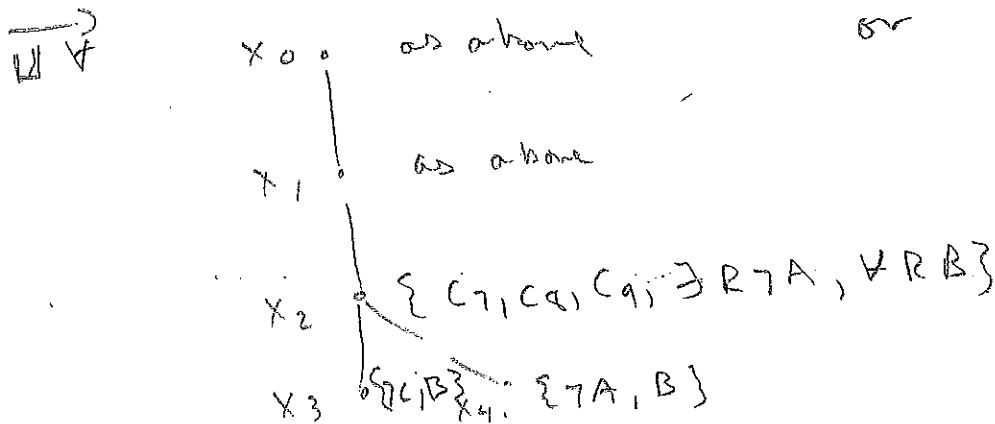 ⊔ ∀ x₀ as above or
x₁ as above
x₂ {C₇, C₈, C₉, ∃R¬A, ∀RB}
x₃ {¬C, B} x₄ {¬A, B}